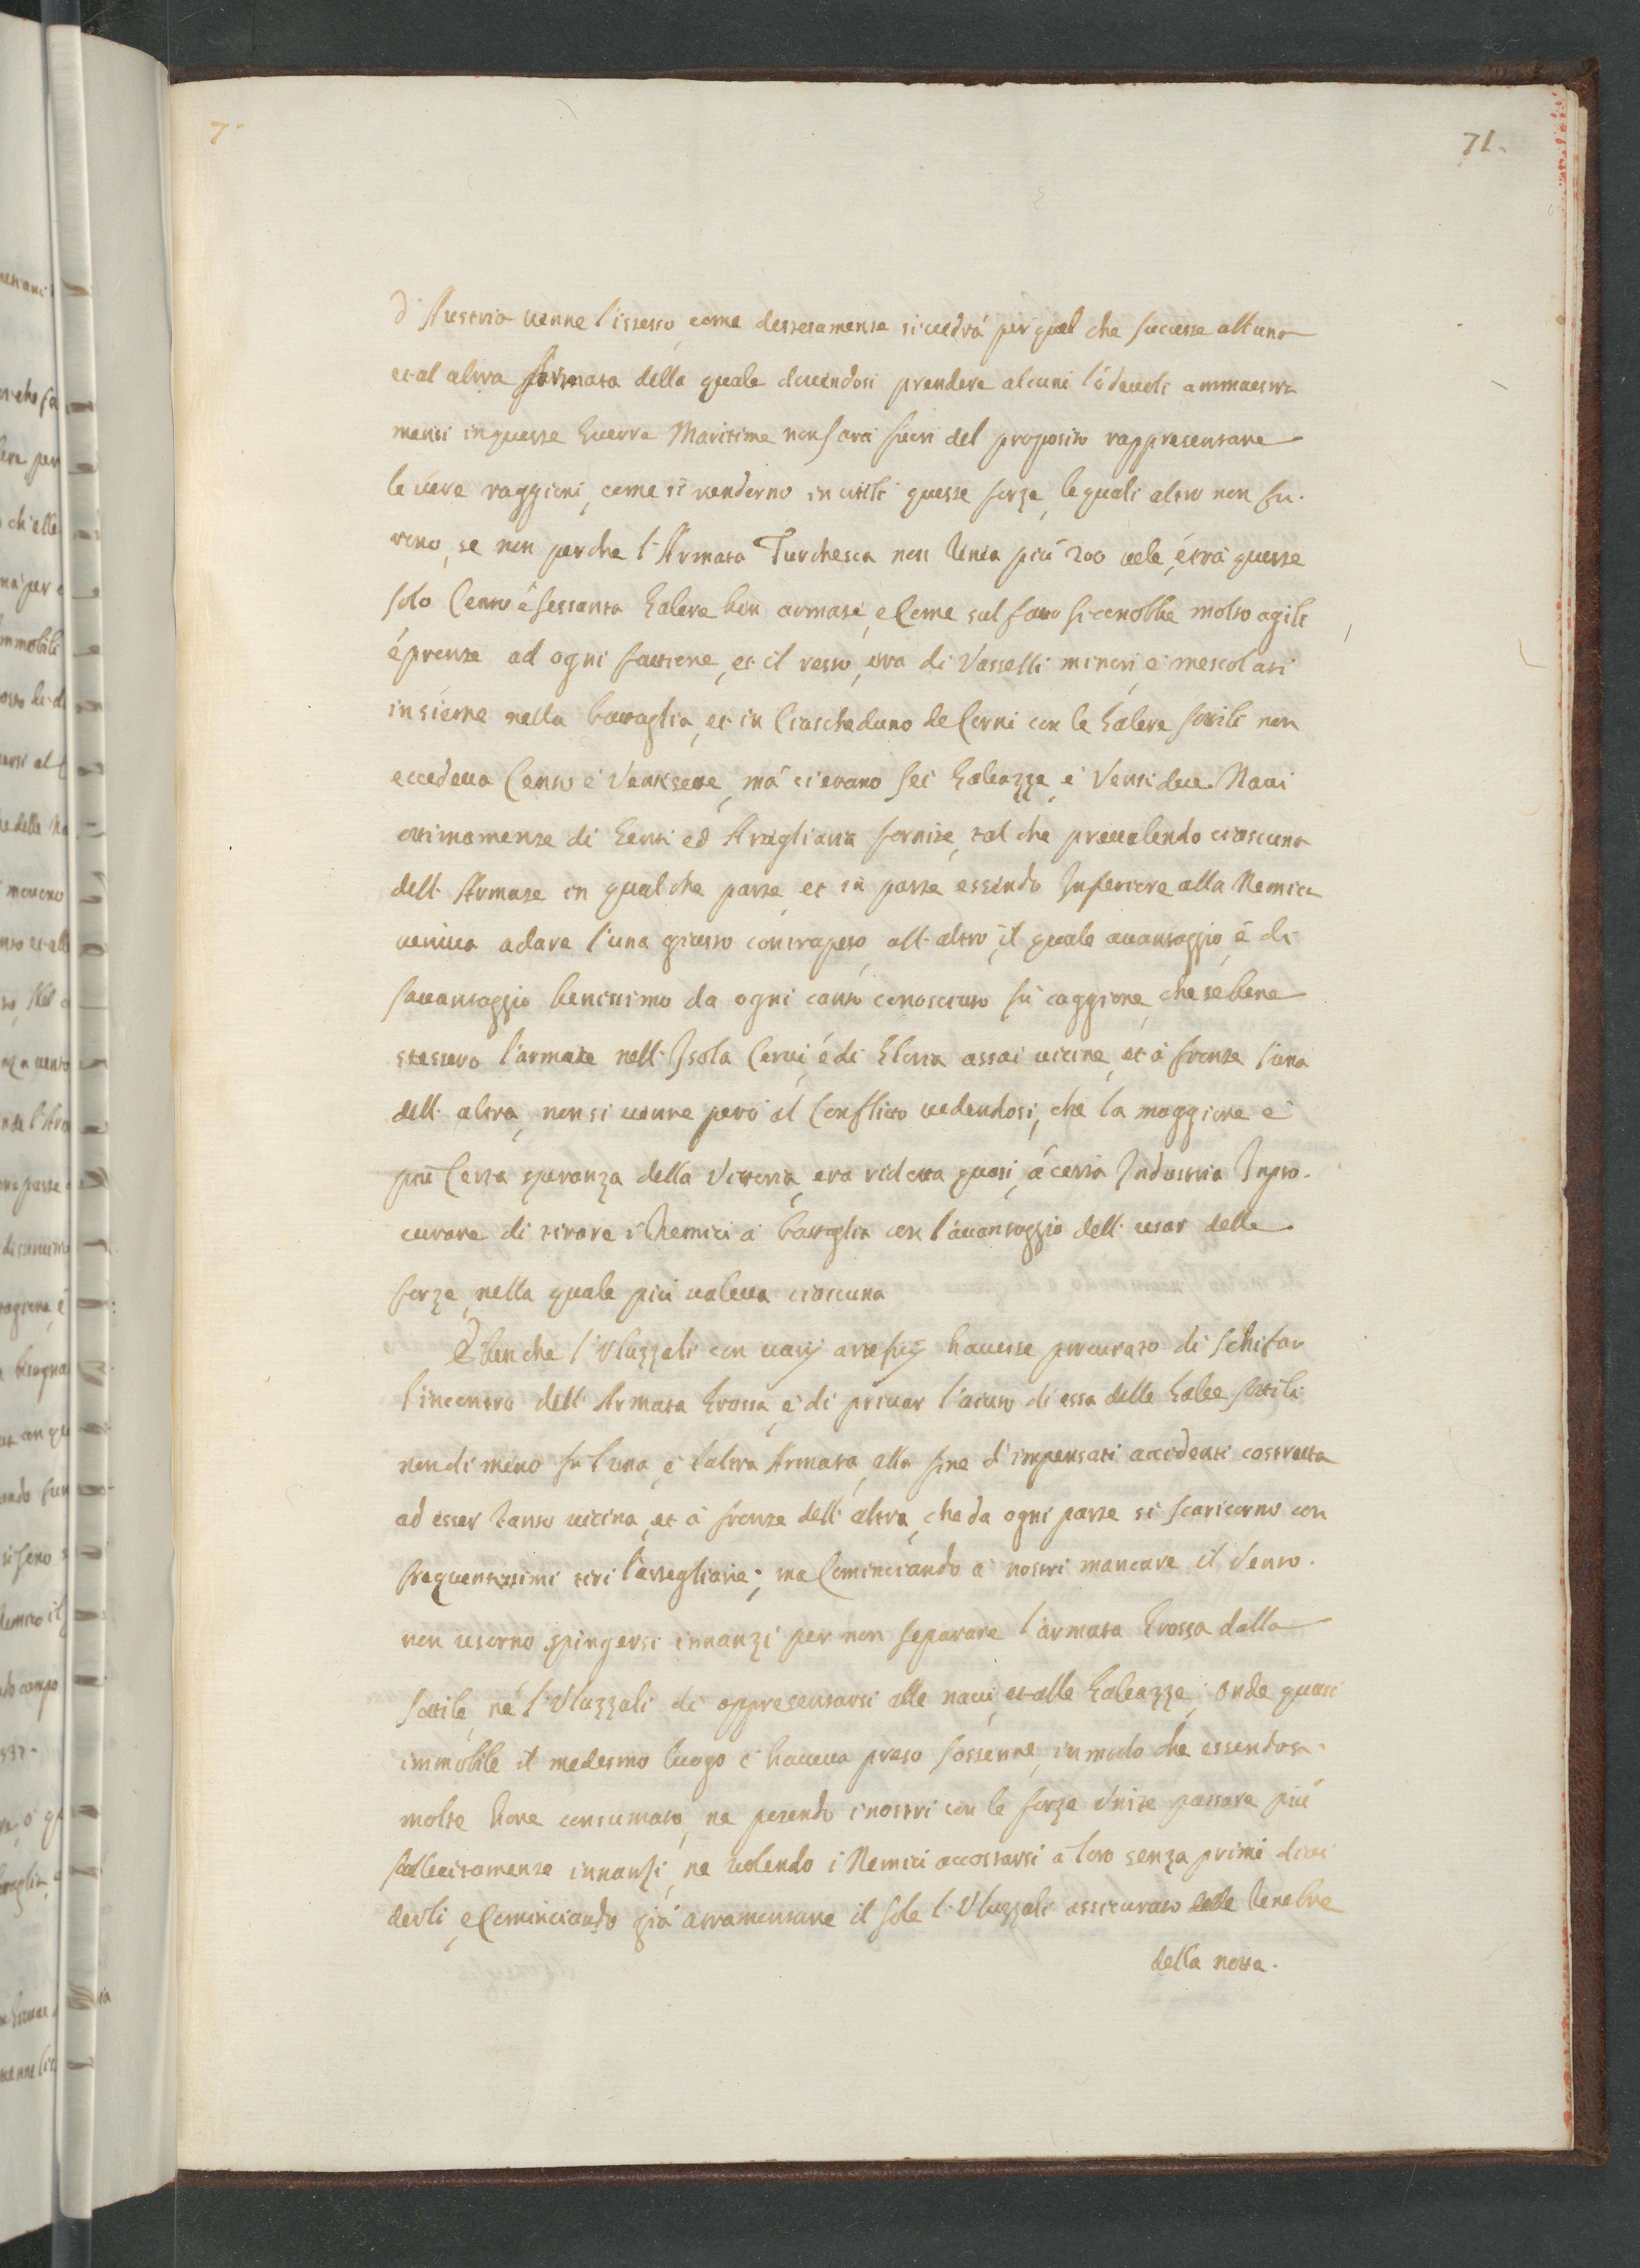 71.
d'Austria venne l'istesso, come desteramente si vedrá per quel che successe all una
et al altra Armata della quale dovendosi prendere alcuni lodevoli ammaestra
menti in queste Guerre Maritime non sará fuori del proposito rappresentare
le vere raggioni, come si renderno inutili queste forze, le quali altro non fu-
rono, se non perche l'Armata Turchesca non tenia piú 200 vele, é trá queste
solo Cento é sessanta Galere ben armate, e Come sul fatto si conobbe molto agili
é pronte ad ogni fattione, et il resto, era di Vasselli minori, e mescolati
insieme nella battaglia, et in Ciascheduno de Corni con le Galere sottili non
eccedeva Cento e Ventisette, má ci erano sei Galeazze, é Venti due Navi
ottimamente di Genti ed Artegliaria fornite, tal che prevalendo ciascuna
dell' Armate in qualche parte, et in parte essendo Inferiore alla Nemica
veniva a dare l'una giusto contrapeso, all' altro, il quale avantaggio, é di
savantaggio benissimo da ogni canto conosciuto fú caggione, che se bene
stessero l'armate nell' Isola Cervi, é di Eloria assai vicine, et á fronte l'una
dell' altra, non si venne però al Conflitto vedendosi, che la maggiore e
piú Certa speranza della Vittoria, era ridotta quasi, á certa Industria In pro-
curare di tirare i Nemici á battaglia con l'avantaggio dell' usar delle
forze, nella quale piú valeva ciascuna
E benche l'Uluzzali con varij artefizij havesse procurato di schifar
l'incontro dell' Armata Grossa, e di privar l'aiuto di essa delle Galee sottili
nondimeno fu l'una, e l'altra Armata, alla fine d'impensati accidenti costretta
ad esser tanto vicina, et á fronte dell' altra, che da ogni parte si scaricorno con
frequentissimi tiri l'artegliarie; ma Cominciando á nostri mancare il Vento.
non usorno spingersi innanzi per non separare l'armata Grossa dalla
sottile, né l'Uluzzali di appresentarsi alle navi, et alle Galeazze; onde quasi
immobile il medesmo luogo c'haveva preso sostenne, in modo che essendosi
molte hore consumato, ne potendo i nostri con le forze Unite passare piú
sollecitamente innanzi, ne volendo i Nemici accostarsi á loro senza prima divi
derli, e Cominciando giá á tramontare il sole l'Uluzzali assicurato delle tenebre
della notte.